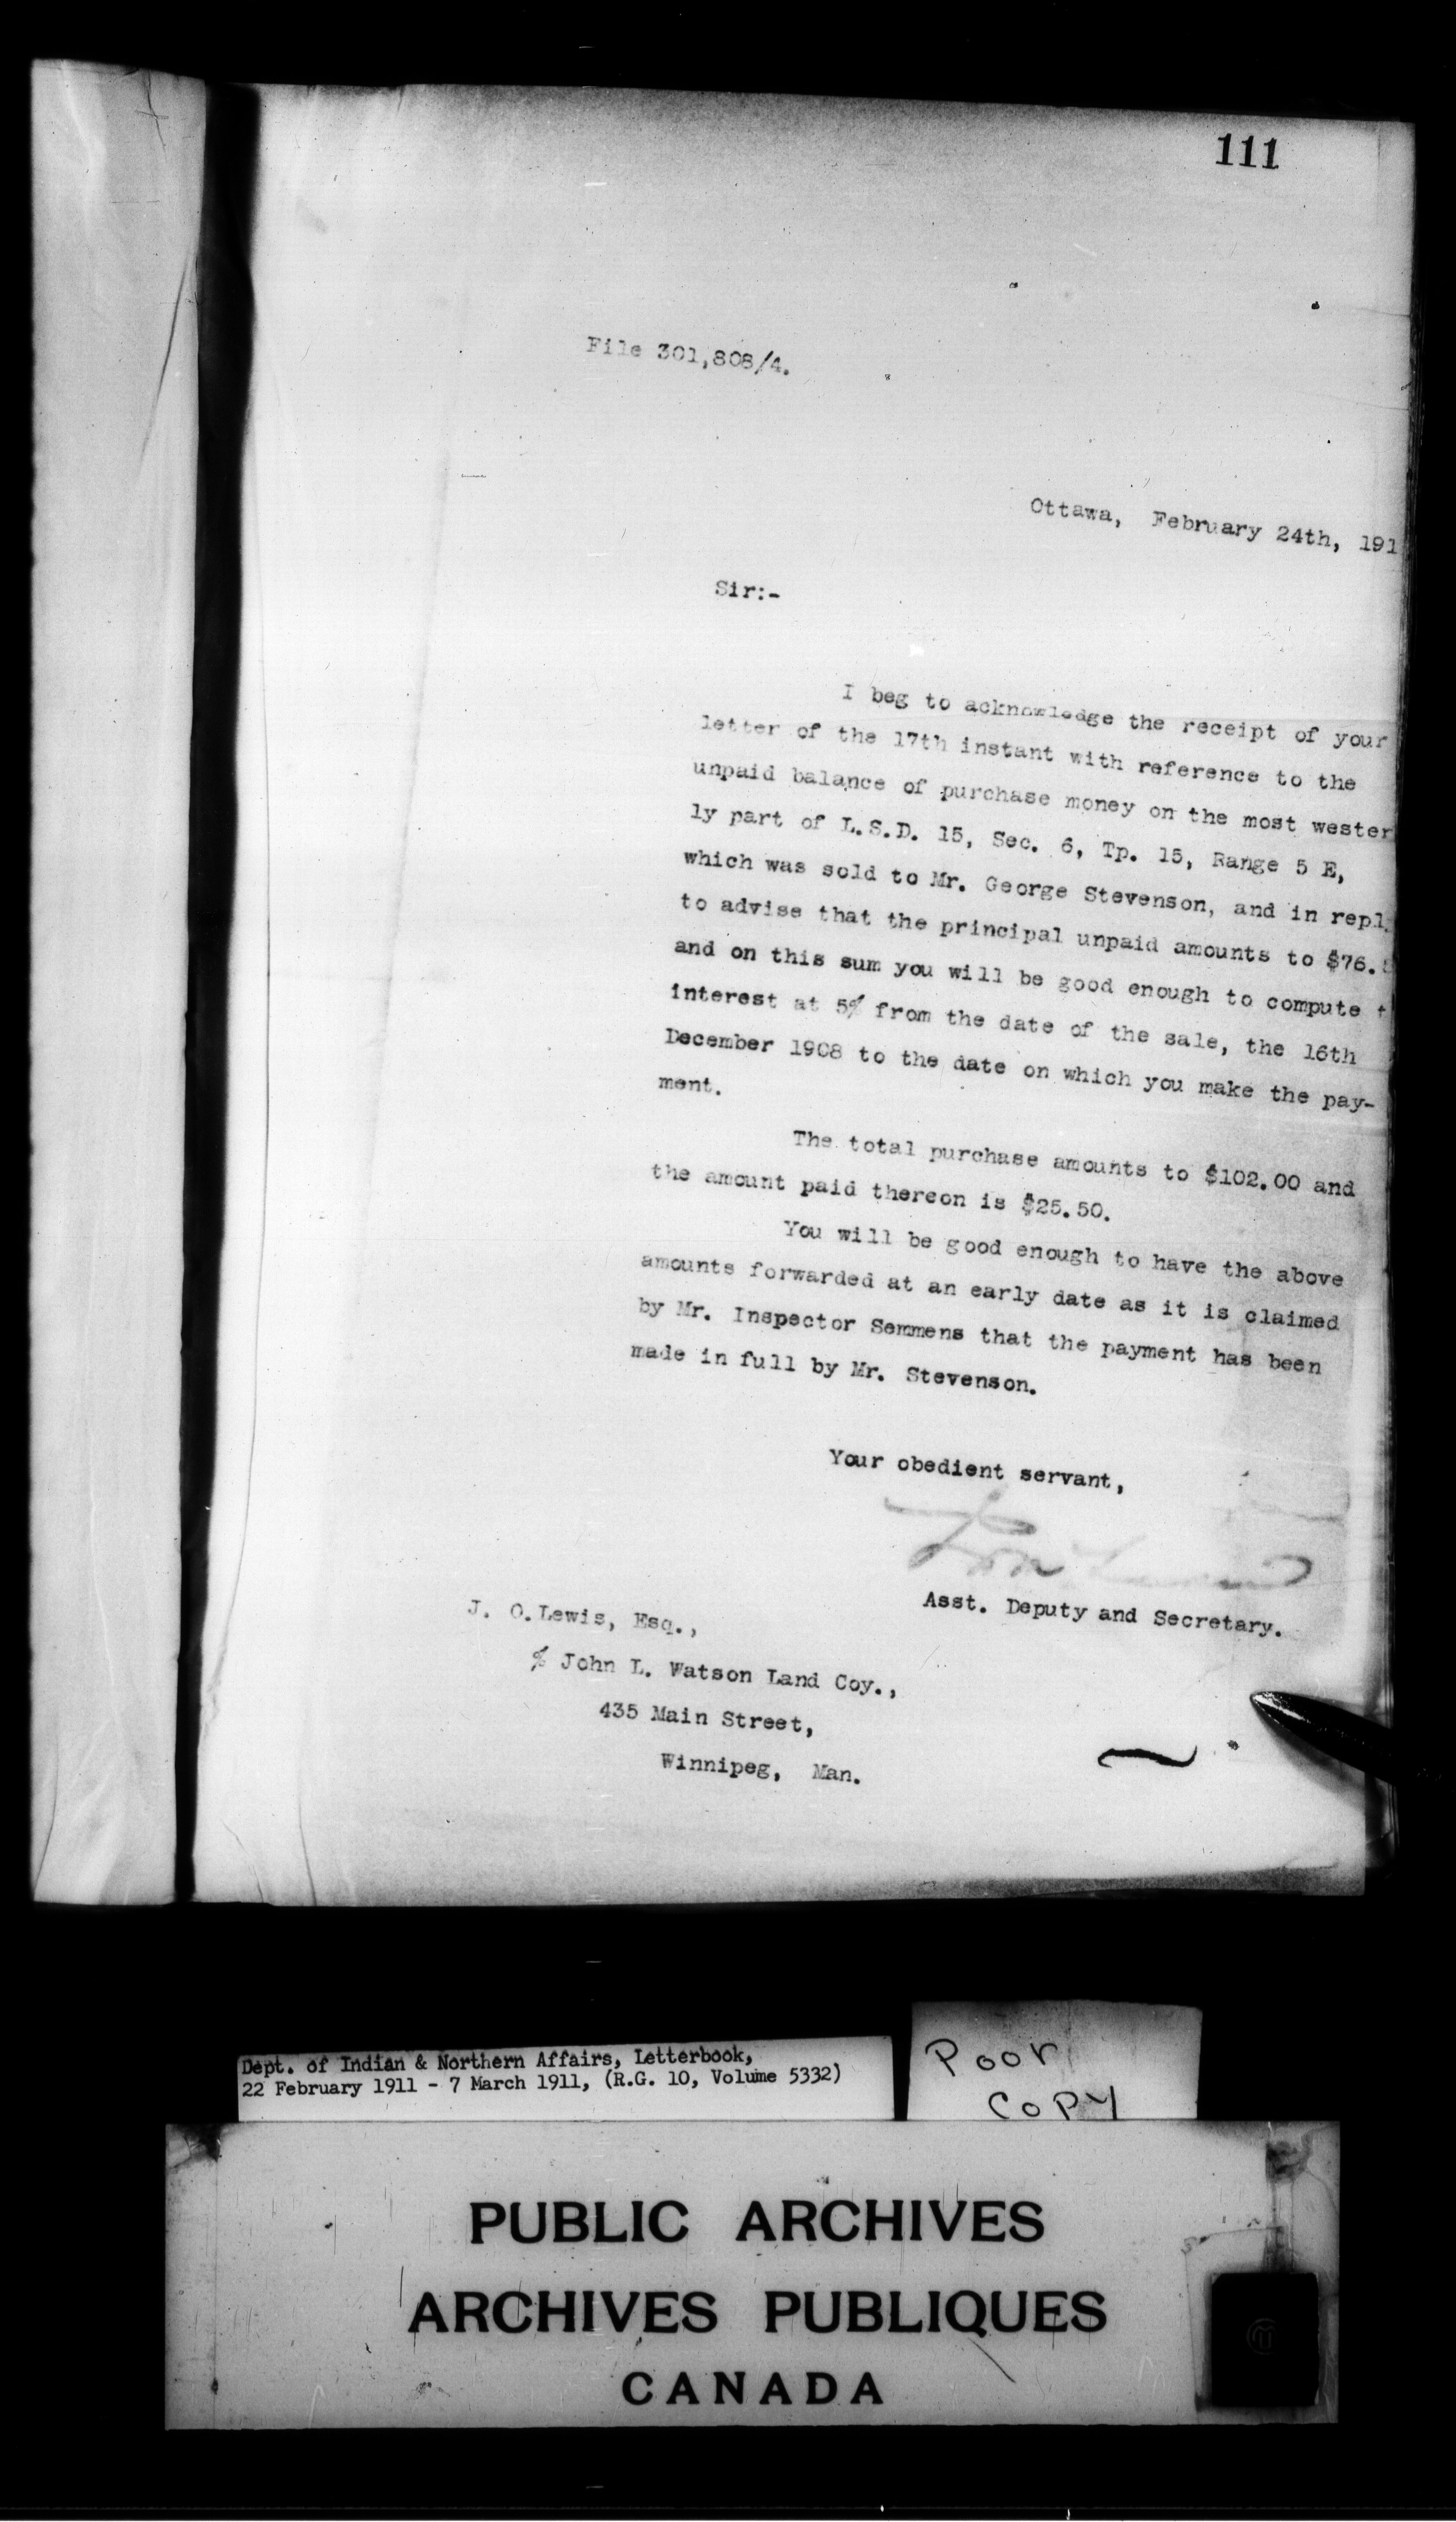 111
File 301,808/4.
Ottawa, February 24th, 191
Sir:-
I beg to acknowledge the receipt of your
letter of the 17th instant with reference to the
unpaid balance of purchase money on the most wester
ly part of L.S.D. 15, Sec. 6, Tp. 15, Range 5 E,
which was sold to Mr. George Stevenson, and in repl
to advise that the principal unpaid amounts to $76.
and on this sum you will be good enough to compute t
interest at 5% from the date of the sale, the 16th
December 1908 to the date on which you make the pay-
ment.
The total purchase amounts to $102.00 and
the amount paid thereon is $25.50.
You will be good enough to have the above
amounts forwarded at an early date as it is claimed
by Mr. Inspector Semmens that the payment has been
made in full by Mr. Stevenson.
Your obedient servant,
Asst. Deputy and Secretary.
J. O. Lewis, Esq.,
% John L. Watson Land Coy.,
435 Main Street,
Winnipeg, Man.
Dept. of Indian & Northern Affairs, Letterbook,
22 February 1911 - 7 March 1911, (R.G. 10, Volume 5332)
Poor
COPY
PUBLIC ARCHIVES
ARCHIVES PUBLIQUES
CANADA